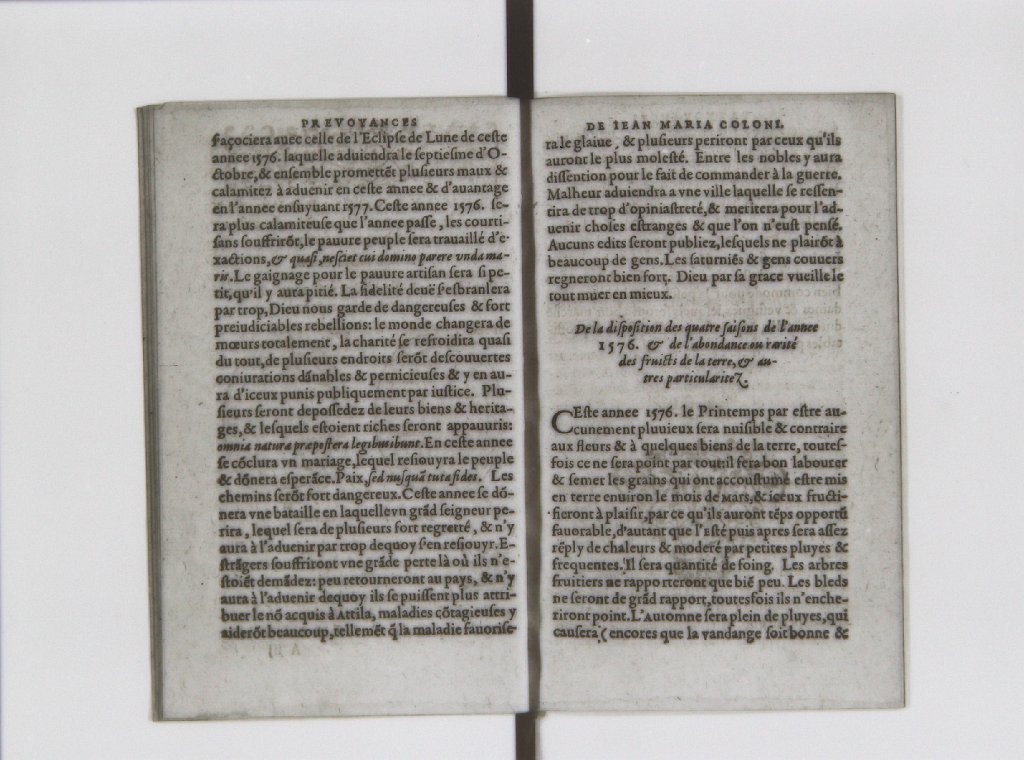 PREVOYANCES
façociera auec celle de l'Eclipſe de Lune de ceſte
annee 1576. laquelle aduiendra le ſeptieſme d'O-
ctobre, & enſemble promettẽt pluſieurs maux &
calamitez à aduenir en ceſte annee & d'auantage
en l'annee enſuyuant 1577. Ceſte annee 1576. ſe-
ra plus calamiteuſe que l'annee paſſe, les courti-
ſans ſouffrirõt, le pauure peuple ſera trauaillé d'e-
xactions, & quaſi, neſciet cui domino parere vnda ma-
ris. Le gaignage pour le pauure artiſan ſera ſi pe-
tit, qu'il y aura pitié. La fidelité deuë ſ'eſbranlera
par trop, Dieu nous garde de dangereuſes & fort
preiudiciables rebellions: le monde changera de
mœurs totalement, la charité ſe refroidira quaſi
du tout, de pluſieurs endroits ſerõt deſcouuertes
coniurations dãnables & pernicieuſes & y en au-
ra d'iceux punis publiquement par iuſtice. Plu-
ſieurs ſeront depoſſedez de leurs biens & herita-
ges, & leſquels eſtoient riches ſeront appauuris:
omnia natura præpoſtera legibus ibunt. En ceſte annee
ſe cõclura vn mariage, lequel reſiouyra le peuple
& dõnera eſperãce. Paix, ſed nuſquã tuta fides. Les
chemins ſerõt fort dangereux. Ceſte annee ſe dõ-
nera vne bataille en laquelle vn grãd ſeigneur pe-
rira, lequel ſera de pluſieurs fort regretté, & n'y
aura à l'aduenir par trop dequoy ſ'en reſiouyr. E-
ſtrãgers ſouffriront vne grãde perte là où ils n'e-
ſtoiẽt demãdez: peu retourneront au pays, & n'y
aura à l'aduenir dequoy ils ſe puiſſent plus attri-
buer le nõ acquis à Attila, maladies cõtagieuſes y
aiderõt beaucoup, tellemẽt q̃ la maladie fauoriſe-
DE IEAN MARIA COLONI.
ra le glaiue, & pluſieurs periront par ceux qu'ils
auront le plus moleſté. Entre les nobles y aura
diſſention pour le fait de commander à la guerre.
Malheur aduiendra a vne ville laquelle ſe reſſen-
tira de trop d'opiniaſtreté, & meritera pour l'ad-
uenir choſes eſtranges & que l'on n'euſt penſé.
Aucuns edits ſeront publiez, leſquels ne plairõt à
beaucoup de gens. Les ſaturniẽs & gens couuers
regneront bien fort, Dieu par ſa grace vueille le
tout muer en mieux.
De la diſpoſition des quatre ſaiſons de l'annee
1576. & de l'abondance ou rarité
des fruicts de la terre, & au-
tres particularitez.
CEſte annee 1576. le Printemps par eſtre au-
cunement pluuieux ſera nuiſible & contraire
aux fleurs & à quelques biens de la terre, toutes-
fois ce ne ſera point par tout: il fera bon labourer
& ſemer les grains qui ont accouſtumé eſtre mis
en terre enuiron le mois de Mars, & iceux fructi-
fieront à plaiſir, par ce qu'ils auront tẽps opportũ
fauorable, d'autant que l'Eſté puis apres ſera aſſez
rẽply de chaleurs & moderé par petites pluyes &
frequentes. Il ſera quantité de foing. Les arbres
fruitiers ne rapporteront que biẽ peu. Les bleds
ne ſeront de grãd rapport, toutesfois ils n'enche-
riront point. L'Automne ſera plein de pluyes, qui
cauſera (encores que la vandange ſoit bonne &